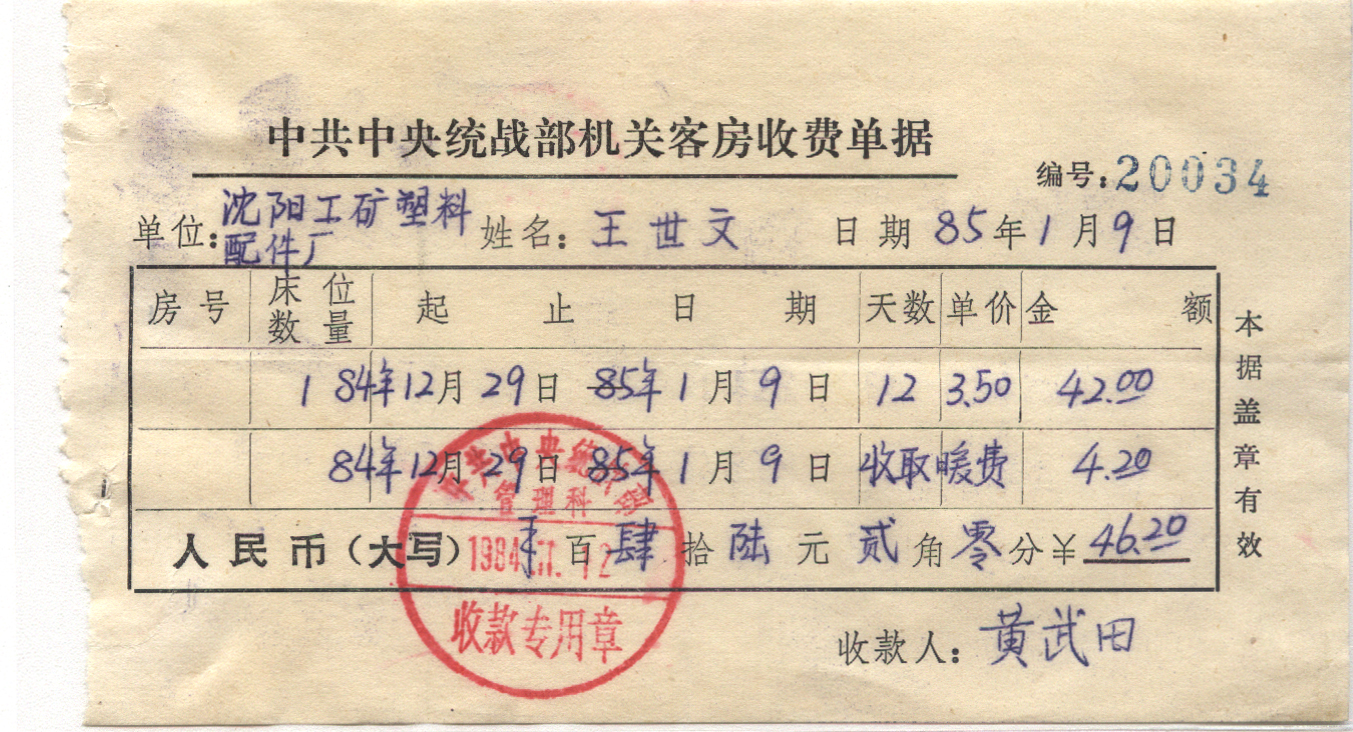 中共中央统战部机关客房收费单据
编号:20034
单位:沈阳工矿塑料配件厂 姓名:王世文 日期 85年1月9日
房号 床位数量 起止日期 天数 单价 金额
1 84年12月29日 85年1月9日 12 3.50 42.00
84年12月29日 85年1月9日 收取暖费 4.20
人民币(大写) 百肆拾陆元贰角零分¥46.20
收款人:黄武田
本据盖章有效
中共中央统战部
管理科
1984
12
收款专用章